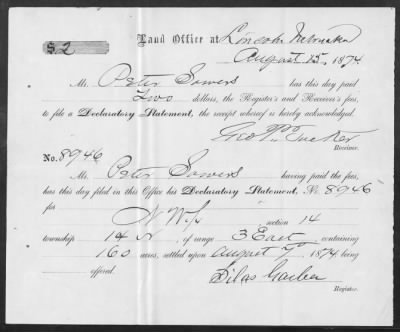 $2
Land Office at Lincoln Nebraska
August 15, 1874
Mr. Peter Sowers has this day paid
Two dollars, the Register's and Receiver's fees,
to file a Declaratory Statement, the receipt whereof is hereby acknowledged.
Geo P. Tucker
Receiver.
No. 8946
Mr. Peter Sowers having paid the fees,
has this day filed in this Office his Declaratory Statement, No 8946
for
N W ¼ section 14
township 14 N, of range 3 East containing
160 acres, settled upon August 7th 1874 being
offered.
Silas Garber
Register.